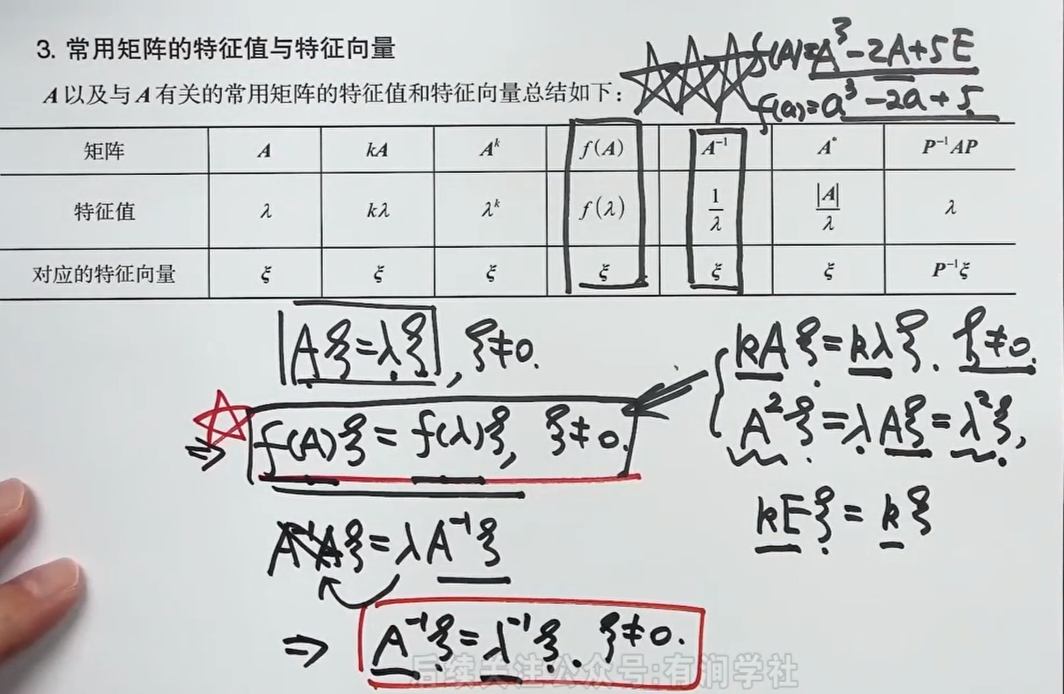 3. 常用矩阵的特征值与特征向量
f(A)=A³-2A+5E
A以及与A有关的常用矩阵的特征值和特征向量总结如下：
f(a)=a³-2a+5
矩阵 A kA Aᵏ f(A) A⁻¹ A* P⁻¹AP
特征值 λ kλ λᵏ f(λ) 1/λ |A|/λ λ
对应的特征向量 ξ ξ ξ ξ ξ ξ P⁻¹ξ
Aξ=λξ, ξ≠0.
kAξ=kλξ. ξ≠0.
⇒ f(A)ξ=f(λ)ξ, ξ≠0.
A²ξ=λAξ=λ²ξ,
kEξ=kξ
A⁻¹Aξ=λA⁻¹ξ
⇒ A⁻¹ξ=λ⁻¹ξ. ξ≠0.
后续关注公众号:有润学社